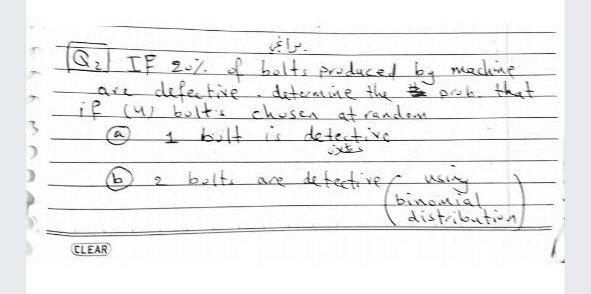 براغي
Q2] IF 20% of bolts produced by machine
are defective . determine the prob. that
if (4) bolts chosen at random
(a) 1 bolt is detective
(b) 2 bolts are detective ( using
binomial
distribution )
CLEAR